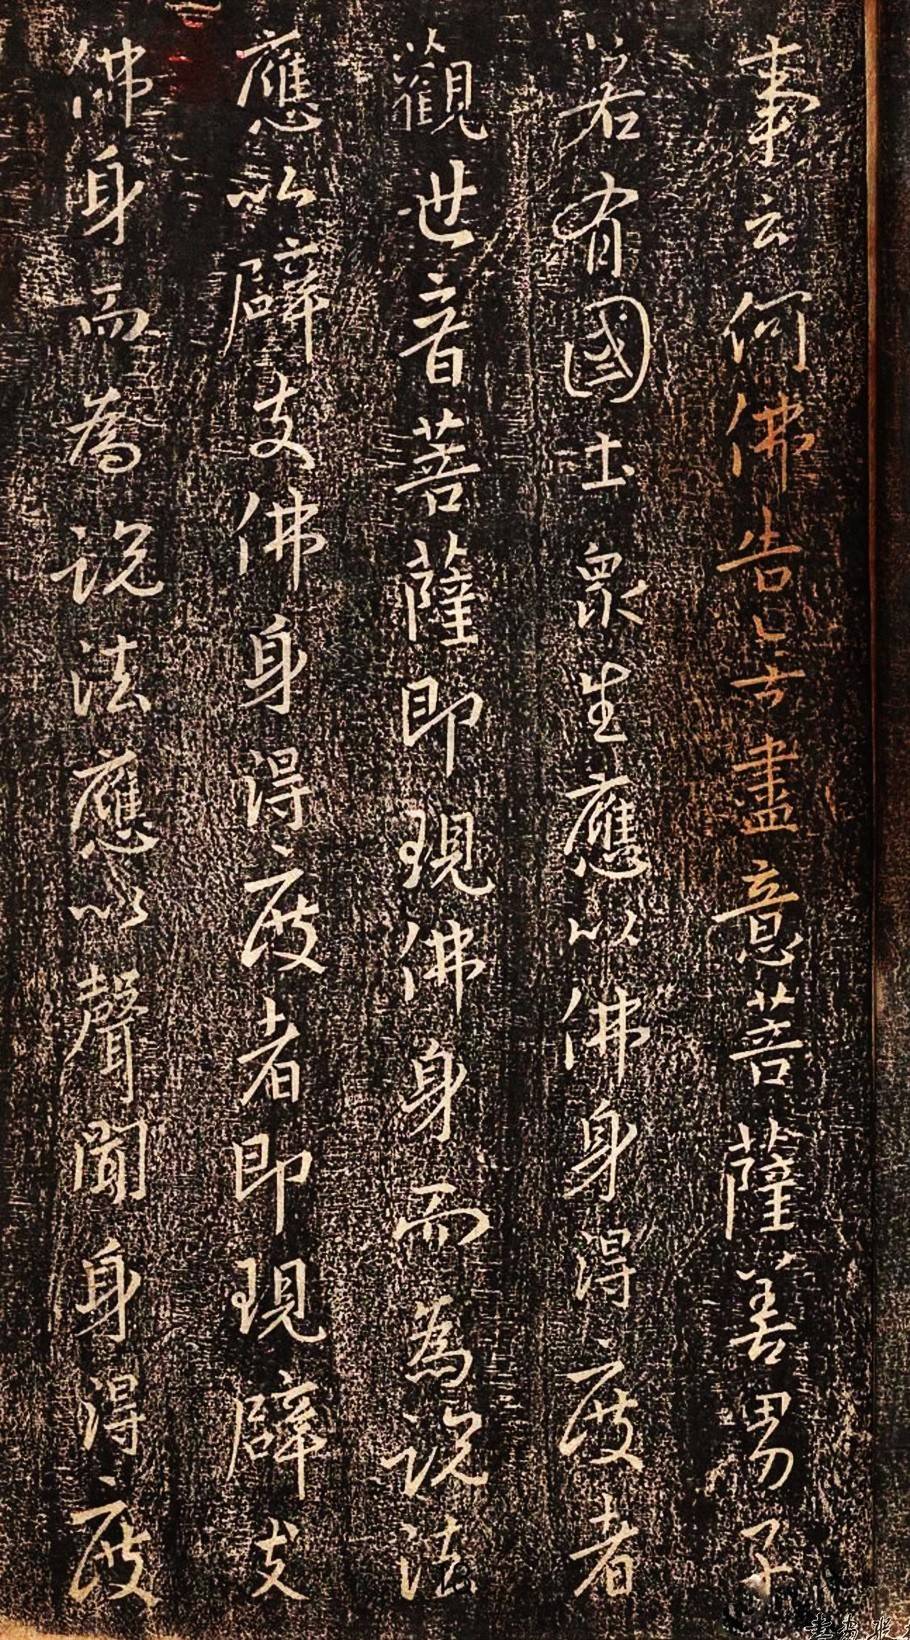 事云何佛告無盡意菩薩善男子
若有國土眾生應以佛身得度者
觀世音菩薩即現佛身而為說法
應以辟支佛身得度者即現辟支
佛身而為說法應以聲聞身得度